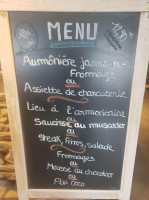 MENU
Aumônière jambon-
Fromage
ou
Assiette de charcuterie
Lieu à l'armoricaine
ou
Saucisse au muscadet
ou
Steak, Frites, salade
Fromages
ou
Mousse au chocolat
ou
Flan coco